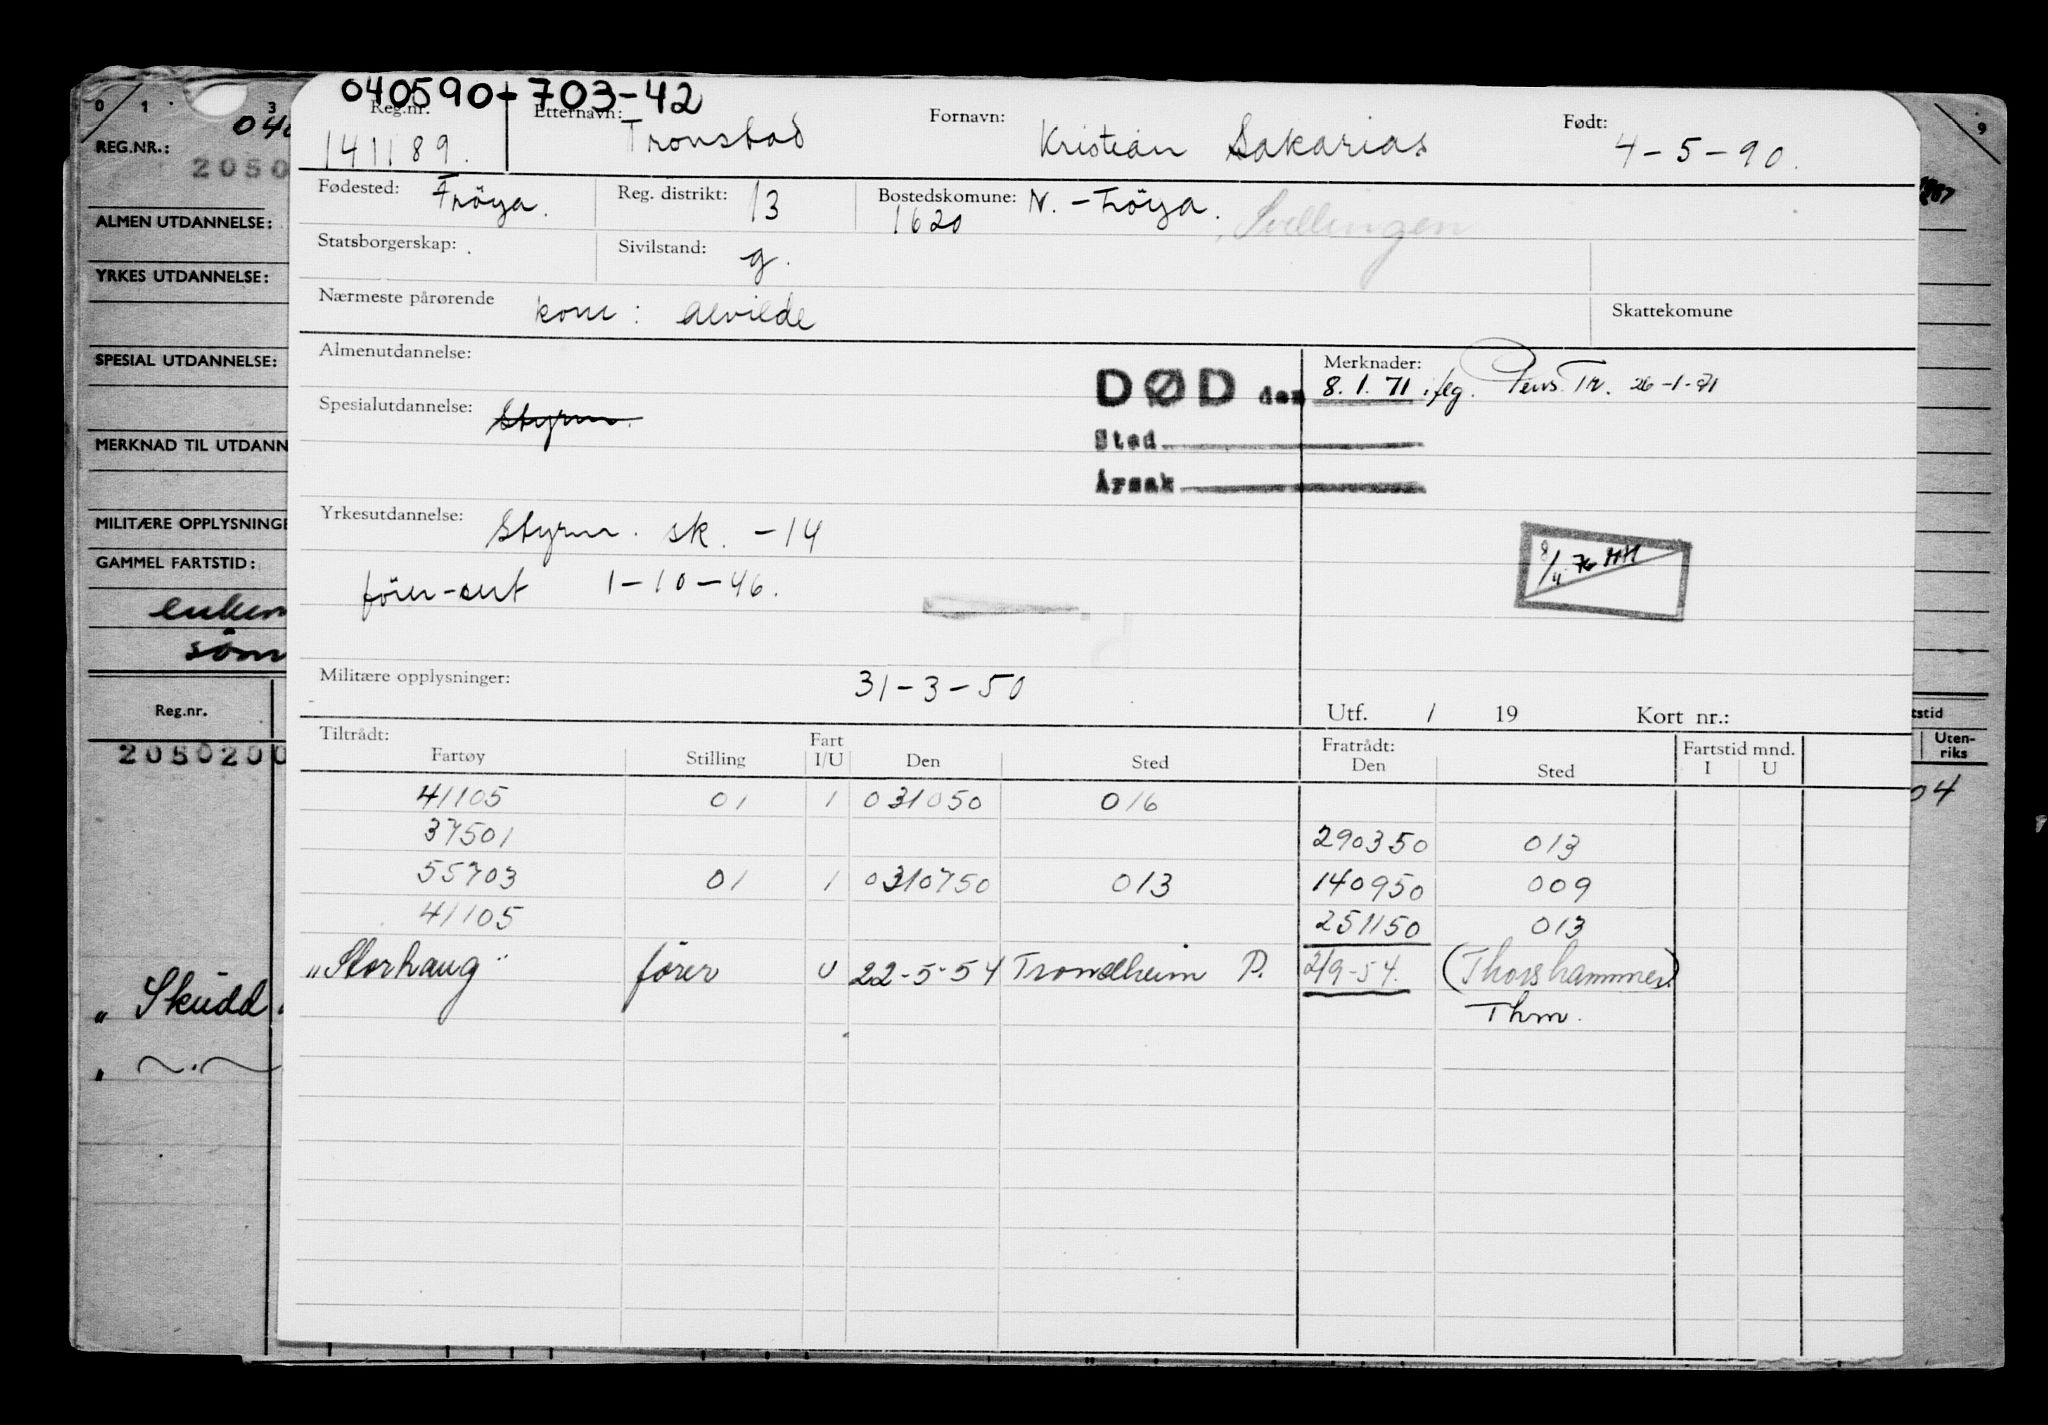 040590+703-42
Reg.nr. Etternavn: Fornavn: Født:
141189. Tronstad Kristian Sakarias 4-5-90.
Fødested: Fröya. Reg. distrikt: 13 Bostedskomune: N.-Fröya.
1620
Statsborgerskap: Sivilstand: g.
Nærmeste pårørende kone: Alvilde Skattekomune
Almenutdannelse: Merknader:
DØD den 8.1.71 iflg. Pens. Tr. 26-1-71
Spesialutdannelse: Styrm.
Sted
Årsak
Yrkesutdannelse: Styrm. sk. -14
förer-sert 1-10-46.
Militære opplysninger: 31-3-50
Utf. / 19 Kort nr.:
Tiltrådt: Fart Fratrådt: Fartstid mnd.
Fartøy Stilling I/U Den Sted Den Sted I U
41105 01 1 031050 016
37501 290350 013
55703 01 1 0310750 013 140950 009
41105 251150 013
„Storhaug" förer U 22-5-54 Trondheim P. 2/9-54. (Thorshammer)
Thm.
0 1 3
REG.NR.:
2050
ALMEN UTDANNELSE:
YRKES UTDANNELSE:
SPESIAL UTDANNELSE:
MERKNAD TIL UTDANN
MILITÆRE OPPLYSNINGE
GAMMEL FARTSTID:
Reg.nr.
2050200
„ Skudd
9
tstid
Uten-
riks
04